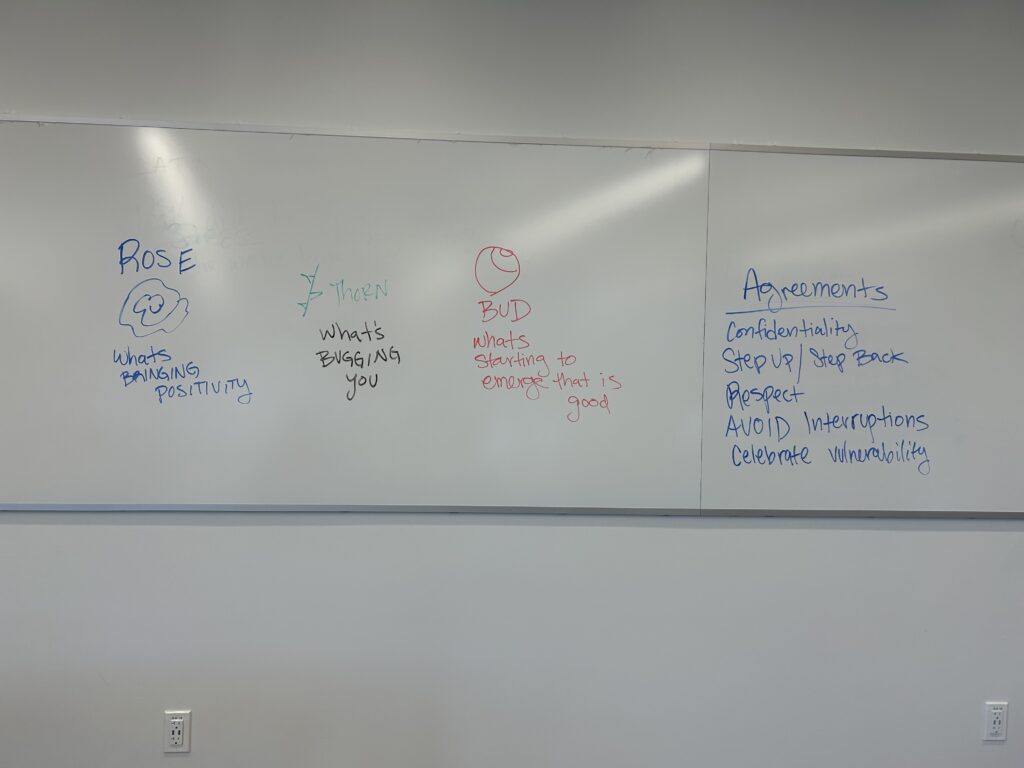 ROSE
whats
BRINGING
POSITIVITY
THORN
What's
BUGGING
YOU
BUD
whats
starting to
emerge that is
good
Agreements
Confidentiality
Step Up/Step Back
Respect
AVOID Interruptions
Celebrate vulnerability